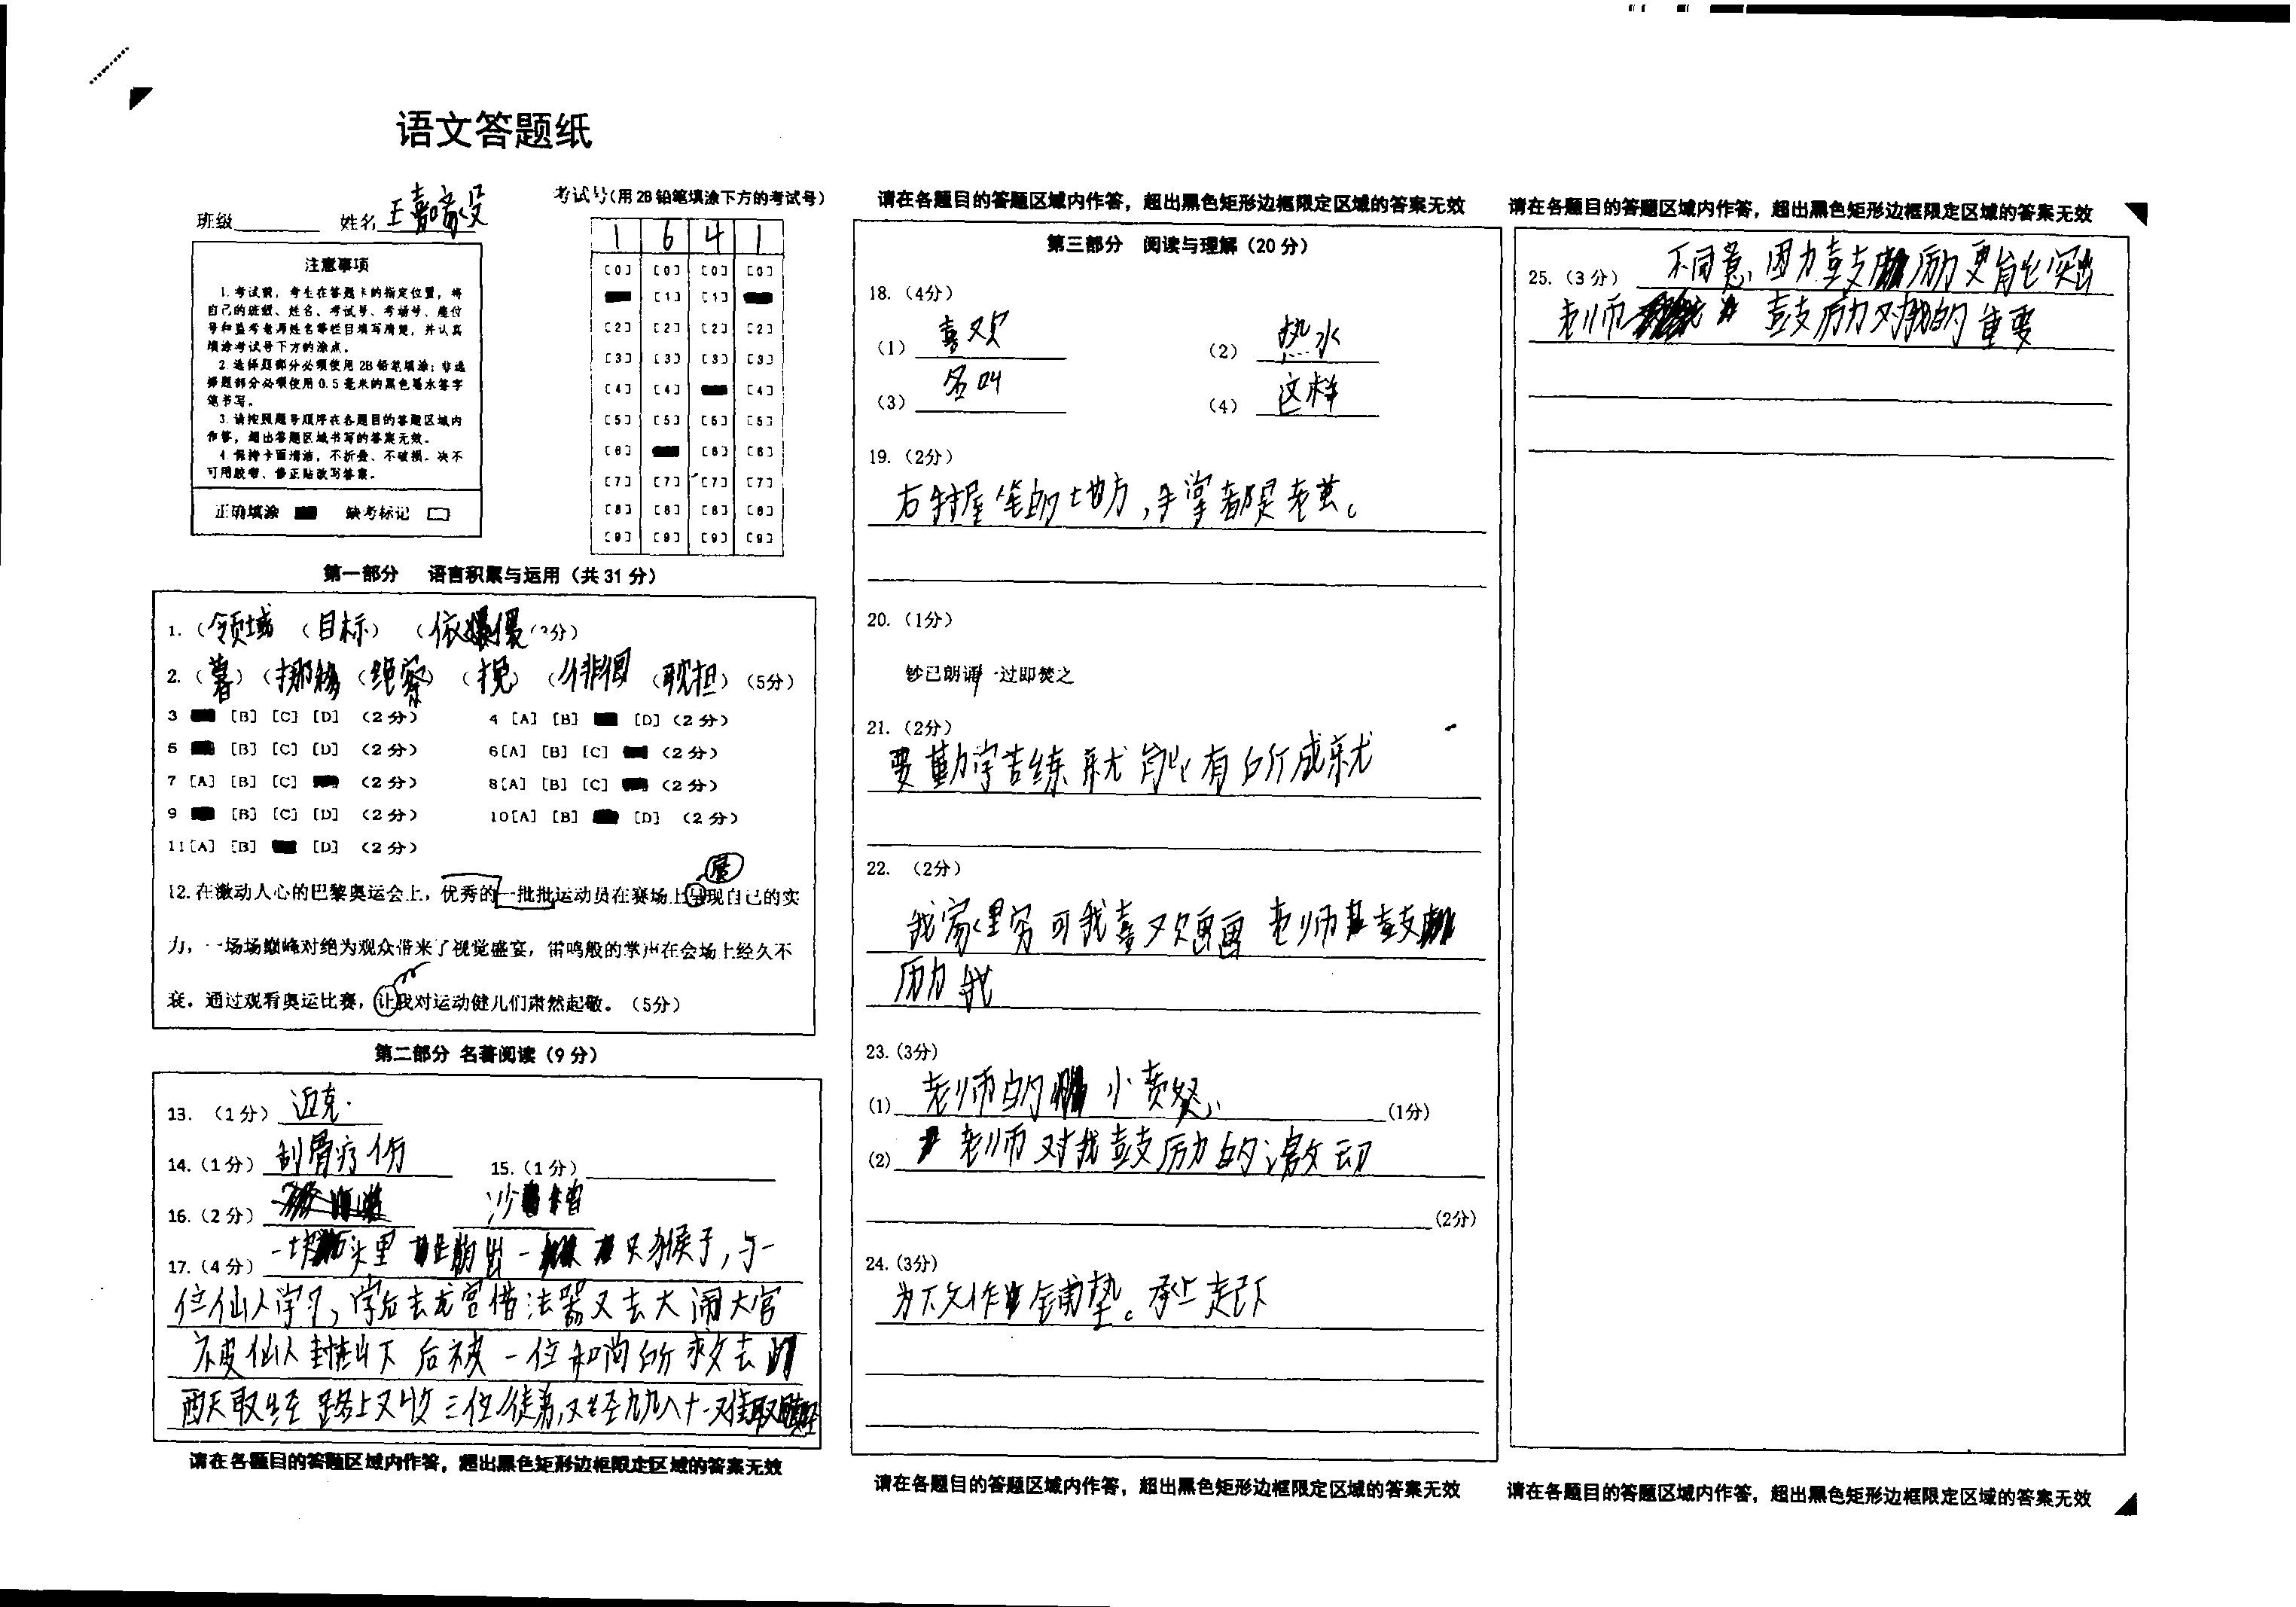 语文答题纸
班级 姓名 王嘉
考试号(用2B铅笔填涂下方的考试号)
1 6 4 1
[0] [0] [0] [0]
[1] [1]
[2] [2] [2] [2]
[3] [3] [3] [3]
[4] [4] [4]
[5] [5] [5] [5]
[6] [6] [6]
[7] [7] [7] [7]
[8] [8] [8] [8]
[9] [9] [9] [9]
注意事项
1.考试前,考生在答题卡的指定位置,将
自己的班级、姓名、考试号、考场号、座位
号和监考老师姓名等栏目填写清楚,并认真
填涂考试号下方的涂点。
2.选择题部分必须使用2B铅笔填涂;非选
择题部分必须使用0.5毫米的黑色墨水签字
笔书写。
3.请按照题号顺序在各题目的答题区域内
作答,超出答题区域书写的答案无效。
4.保持卡面清洁,不折叠、不破损。决不
可用胶带、修正贴改写答案。
正确填涂 缺考标记
第一部分 语言积累与运用(共31分)
1.(领域 (目标) (依偎(3分)
2.(暮)(挪移(绝察)(挽)(徘徊(耽担)(5分)
3 [B] [C] [D] (2分) 4 [A] [B] [D](2分)
5 [B] [C] [D] (2分) 6[A] [B] [C] (2分)
7 [A] [B] [C] (2分) 8[A] [B] [C] (2分)
9 [B] [C] [D] (2分) 10[A] [B] [D] (2分)
11[A] [B] [D] (2分)
展
12.在激动人心的巴黎奥运会上,优秀的一批批运动员在赛场上呈现自己的实
力,一场场巅峰对绝为观众带来了视觉盛宴,雷鸣般的掌声在会场上经久不
衰。通过观看奥运比赛,让我对运动健儿们肃然起敬。(5分)
第二部分 名著阅读(9分)
13.(1分) 迈克.
14.(1分) 刮骨疗伤 15.(1分)
16.(2分) 沙僧
17.(4分) 一块石头里 蹦出一 只猴子,与一
位仙人学习,学后去龙宫借法器又去大闹大宫
被仙人封在山下 后被一位和尚所救去
西天取经 路上又收三位徒弟,又经九九八十一难取
请在各题目的答题区域内作答,超出黑色矩形边框限定区域的答案无效
请在各题目的答题区域内作答,超出黑色矩形边框限定区域的答案无效
第三部分 阅读与理解(20分)
18.(4分)
(1) 喜欢 (2) 热水
(3) 名叫 (4) 这样
19.(2分)
右手握笔的地方,手掌都是老茧。
20.(1分)
钞已朗诵/一过即焚之
21.(2分)
要勤学苦练就能有所成就
22.(2分)
我家里穷可我喜欢画画 老师 鼓
励我
23.(3分)
(1) 老师的 小愤怒, (1分)
(2) 老师对我鼓励的激动
(2分)
24.(3分)
为下文作 铺垫。承上起下
请在各题目的答题区域内作答,超出黑色矩形边框限定区域的答案无效
请在各题目的答题区域内作答,超出黑色矩形边框限定区域的答案无效
25.(3分) 不同意,因为鼓励更能突出
老师 鼓励对我的重要
请在各题目的答题区域内作答,超出黑色矩形边框限定区域的答案无效